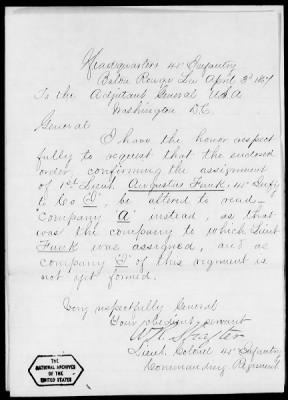 Headquarters 41st Infantry
Baton Rouge La April 3d 1867
To the Adjutant General U.S.A
Washington D.C.
General
I have the honor respect
fully to request that the enclosed
order, confirming the assignment
of 1st Lieut. Augustus Funk, 41st Infty
to Co "D", be altered to read-
"Company "A" instead, as that
was the company to which Lieut
Funk was assigned, and as
company "D" of this regiment is
not yet formed.
Very respectfully General
Your obedient servant
Shafter
Lieut. Colonel 41st Infantry
Commanding Regiment.
THE
NATIONAL ARCHIVES
OF THE
UNITED STATES